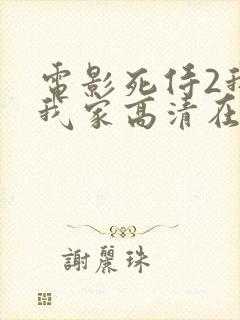 電影死侍2我
我家高清在
謝麗珠